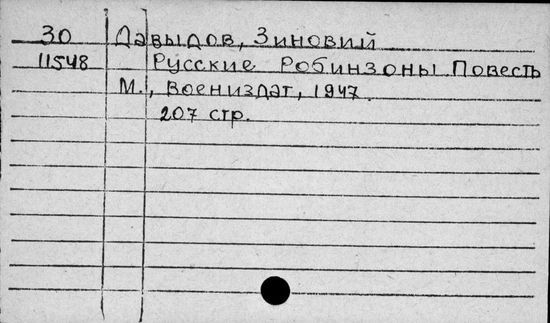 30 Давыдов, Зиновий
11548 Русские Робинзоны Повесть
М., Воениздат, 1947.
207 стр.